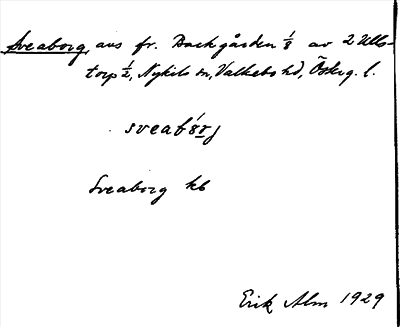 Sveaborg, avs fr. Backgården 1/8 av 2 Ulls-
torp 1/2, Nykils sn, Valkebo hd, Österg. l.
sveabórj
Sveaborg kb
Erik Alm 1929